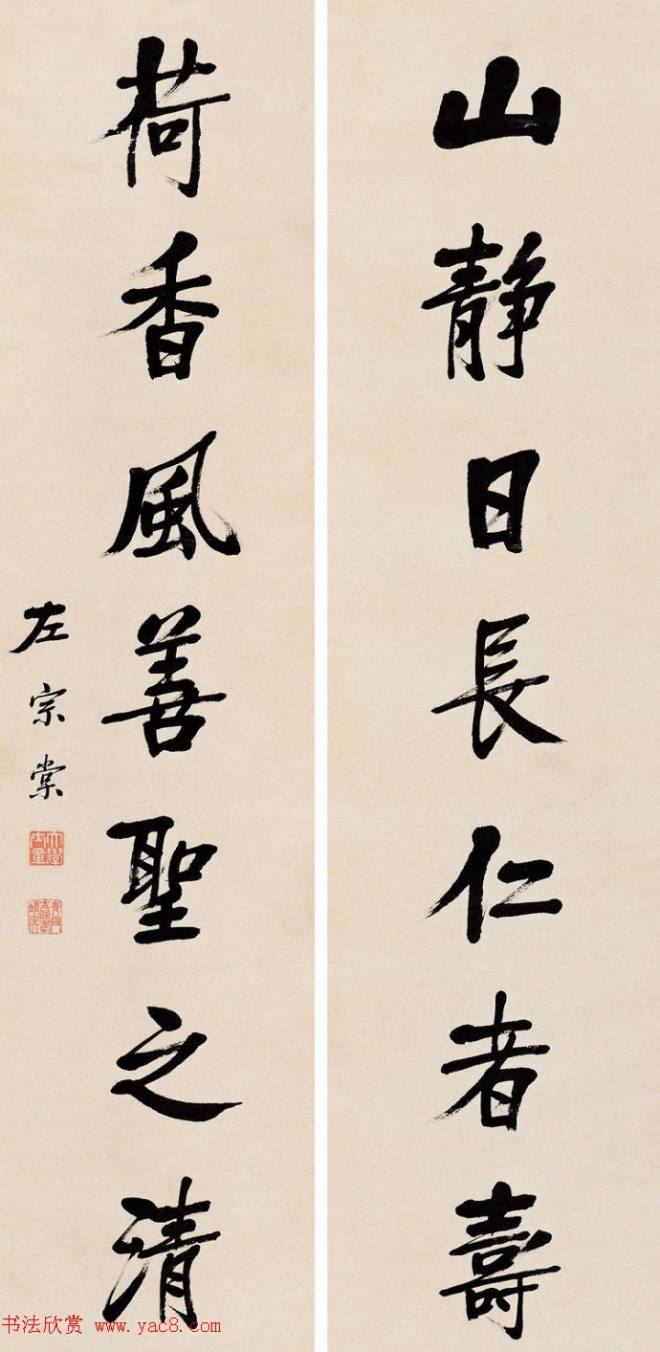 山靜日長仁者壽
荷香風善聖之清
左宗棠
书法欣赏 www.yac8.com